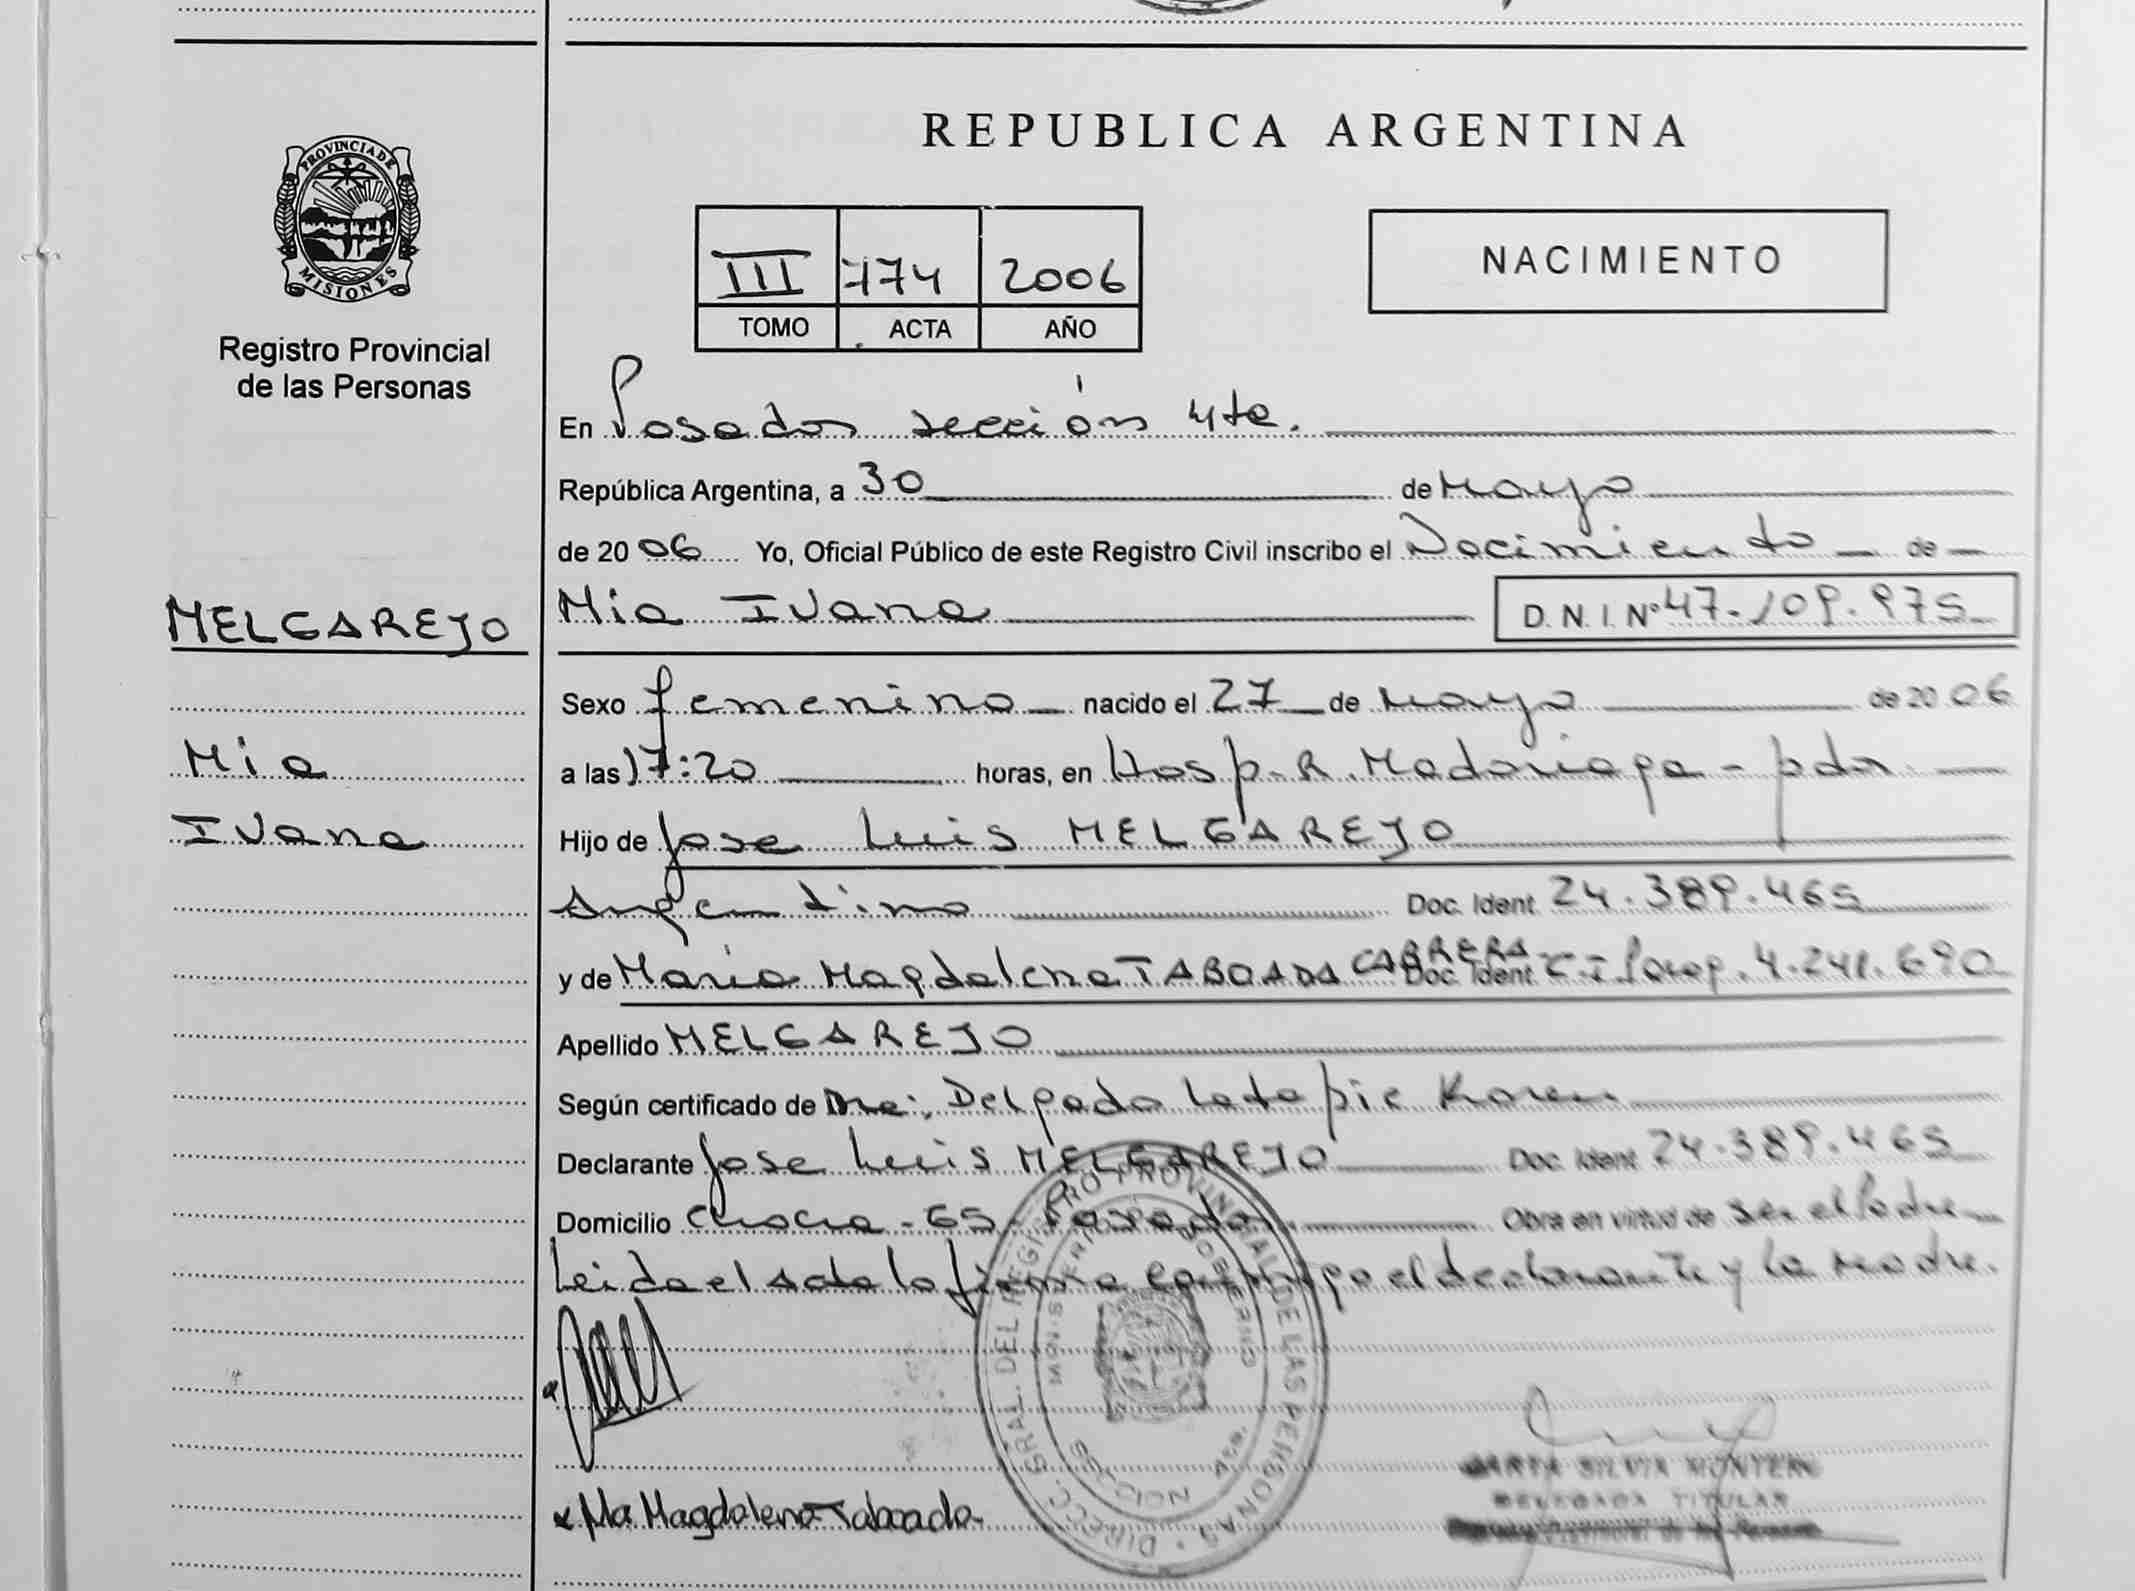 REPUBLICA ARGENTINA
PROVINCIA DE
MISIONES
Registro Provincial
de las Personas
III 774 2006
TOMO ACTA AÑO
NACIMIENTO
En Posadas sección 4ta.
República Argentina, a 30 de Mayo
de 2006 Yo, Oficial Público de este Registro Civil inscribo el Nacimiento de
MELGAREJO
Mia Ivana D.N.I. Nº 47.109.975
Mia
Ivana
Sexo femenino nacido el 27 de Mayo de 2006
a las 17:20 horas, en Hosp. R. Madariaga - pdas.
Hijo de Jose Luis MELGAREJO
Argentino Doc. Ident 24.389.465
y de Maria Magdalena TABOADA CABRERA Doc. Ident C.I. Parag. 4.241.690
Apellido MELGAREJO
Según certificado de Dra: Delgado Latapie Karen
Declarante Jose Luis MELGAREJO Doc. Ident 24.389.465
Domicilio - 65 - Posadas. Obra en virtud de ser el Padre
Leida el Acta la firma conmigo el declarante y la madre.
DIRECC. GRAL. DEL REGISTRO PROVINCIAL DE LAS PERSONAS
MINISTERIO DE GOBIERNO
SECCION 4ta.
MISIONES
x Ma Magdalena Taboada
SILVIA
DELEGADA TITULAR
Provincial de las Personas